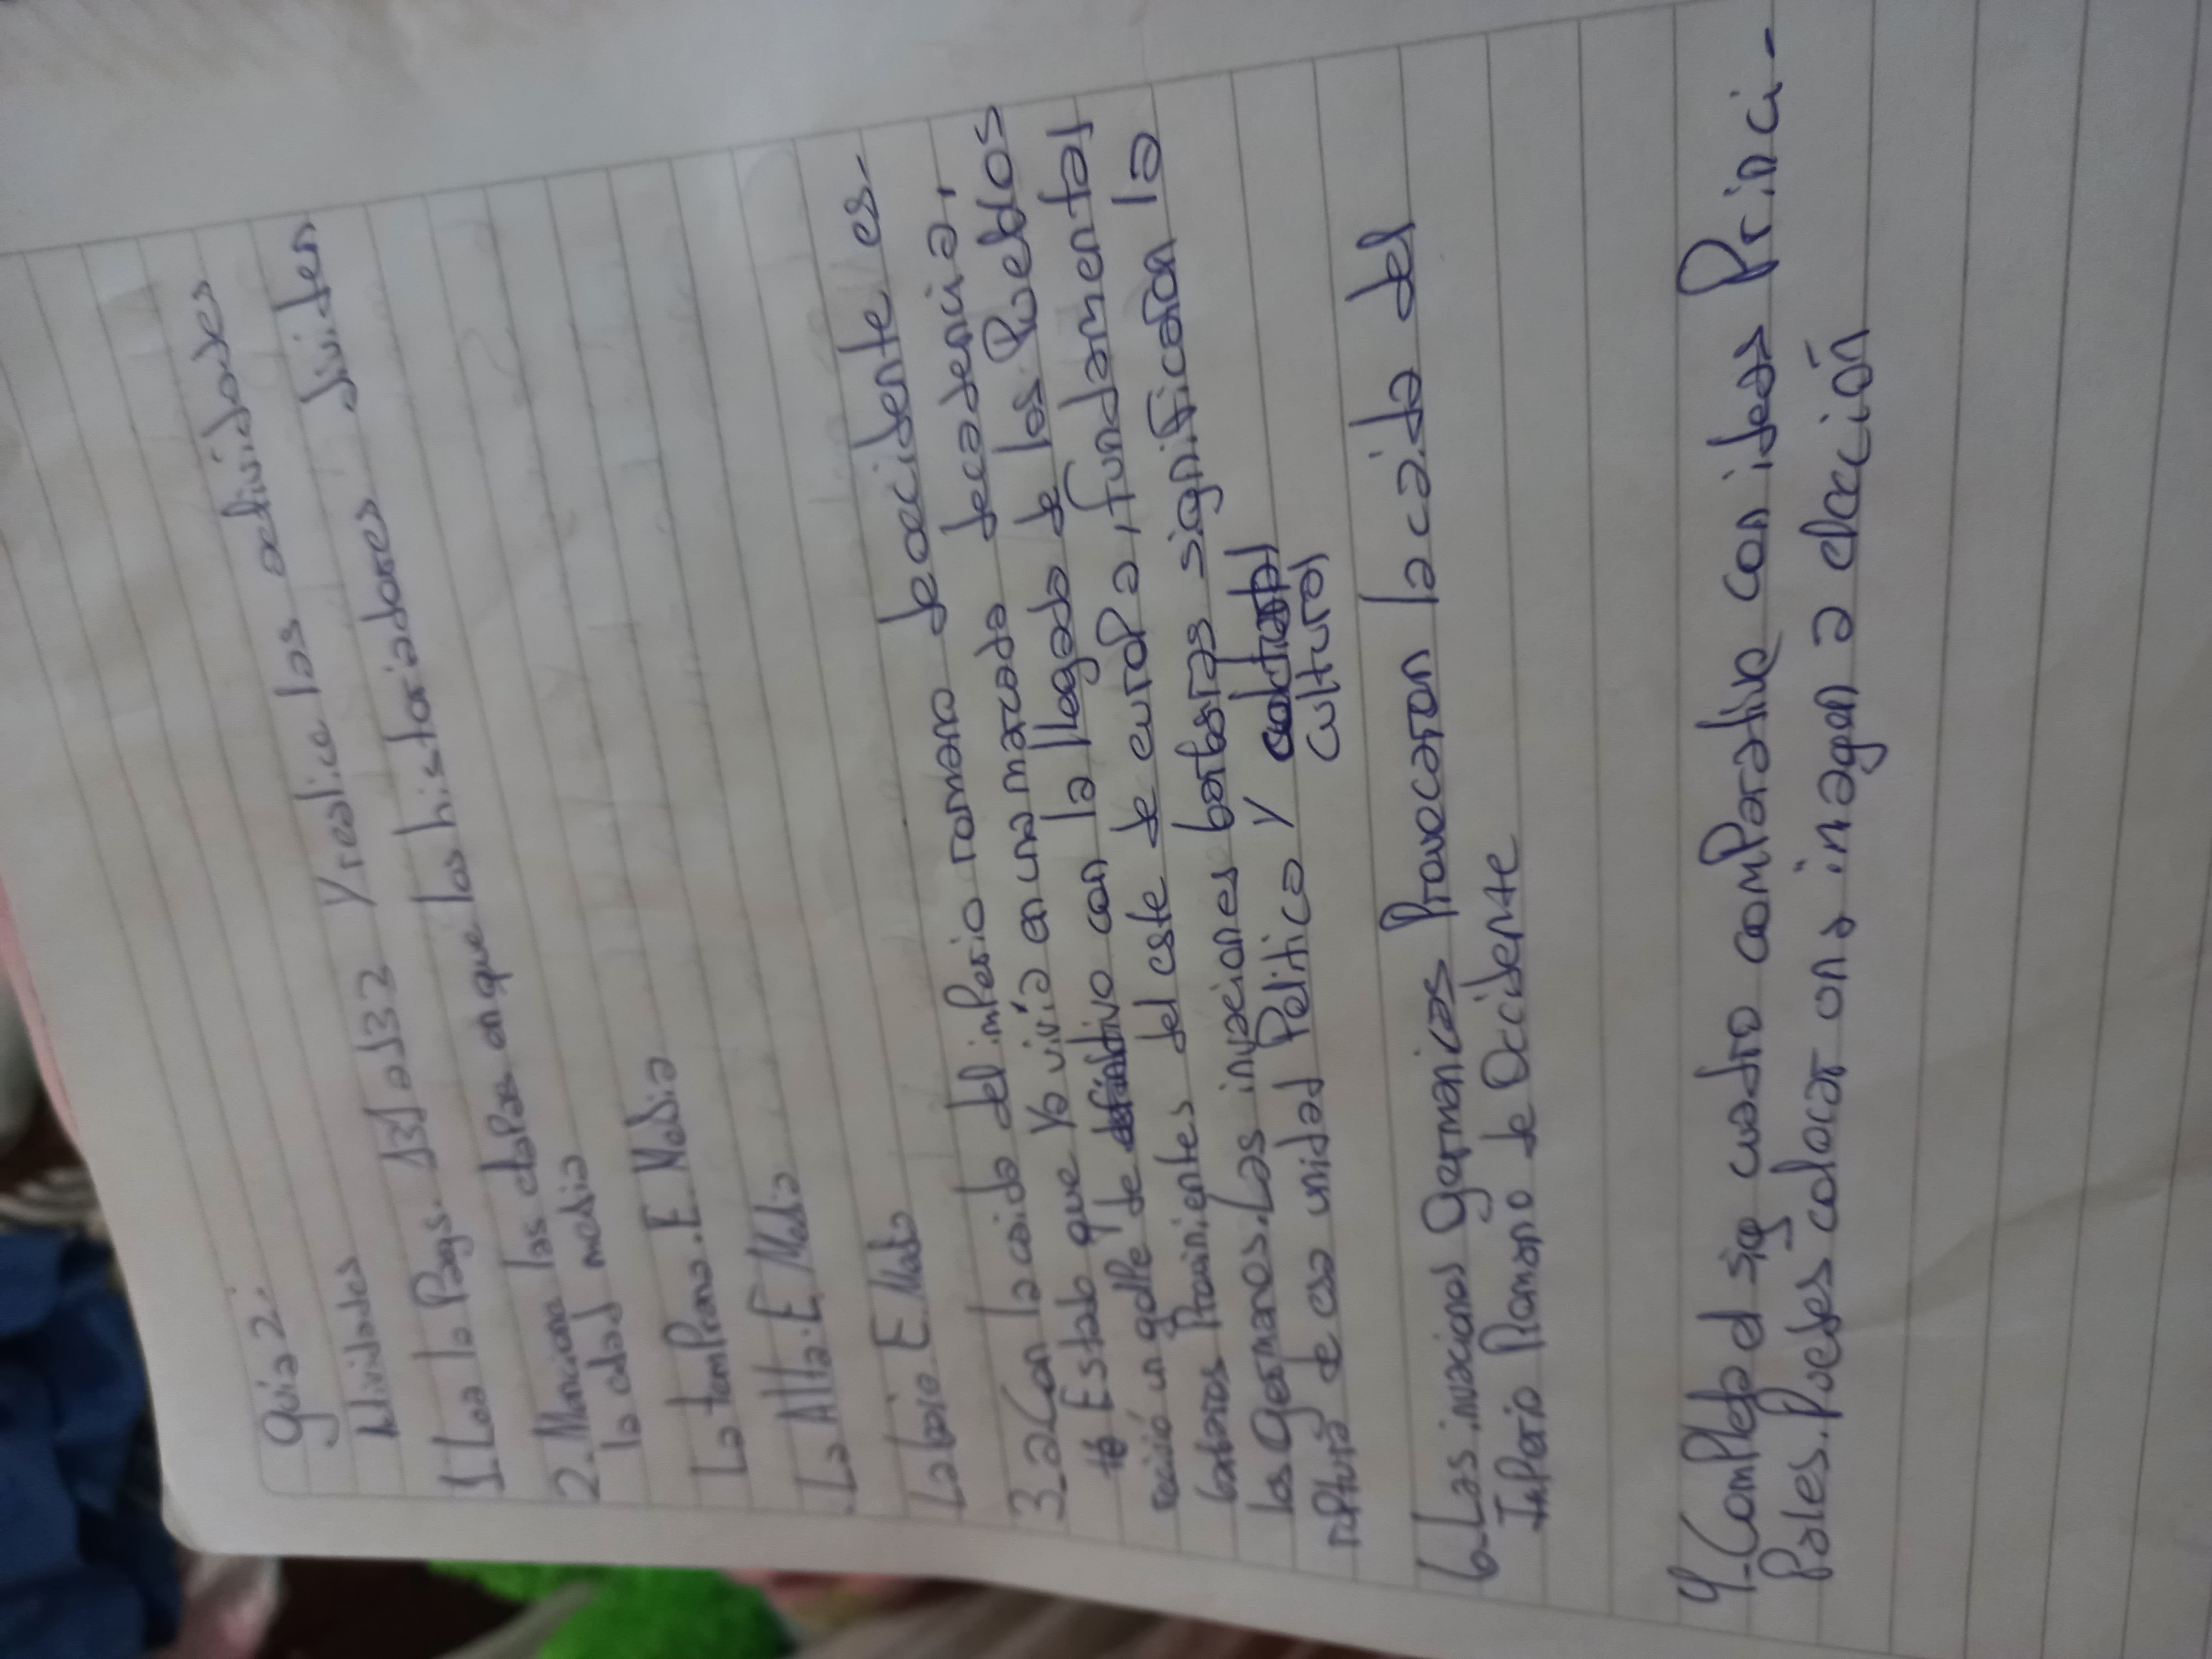 Guia 2.
Actividades
1. Lea la Pags. 131 al 132 y realice las actividades
2- Menciona las etapas en que los historiadores dividen
la edad media
La temprana. E. Media
La Alta. E. Media
La baja. E. Media
3- a Con la caida del imperio romano de occidente es-
Estado que ya vivía en una marcada decadencia,
recivió un golpe de definitivo con la llegada de los Pueblos
barbaros Provinientes del este de europa, fundamental
los Germanos. Las invaciones barbaras significaron la
ruptura de esa unidad Politica y
cultural
b- Las invaciones Germanicas Provocaron la caída del
Imperio Romano de Occidente
4- Completa el sig cuadro comParativo con ideas Princi-
Pales. Puedes colocar una imagen a elección